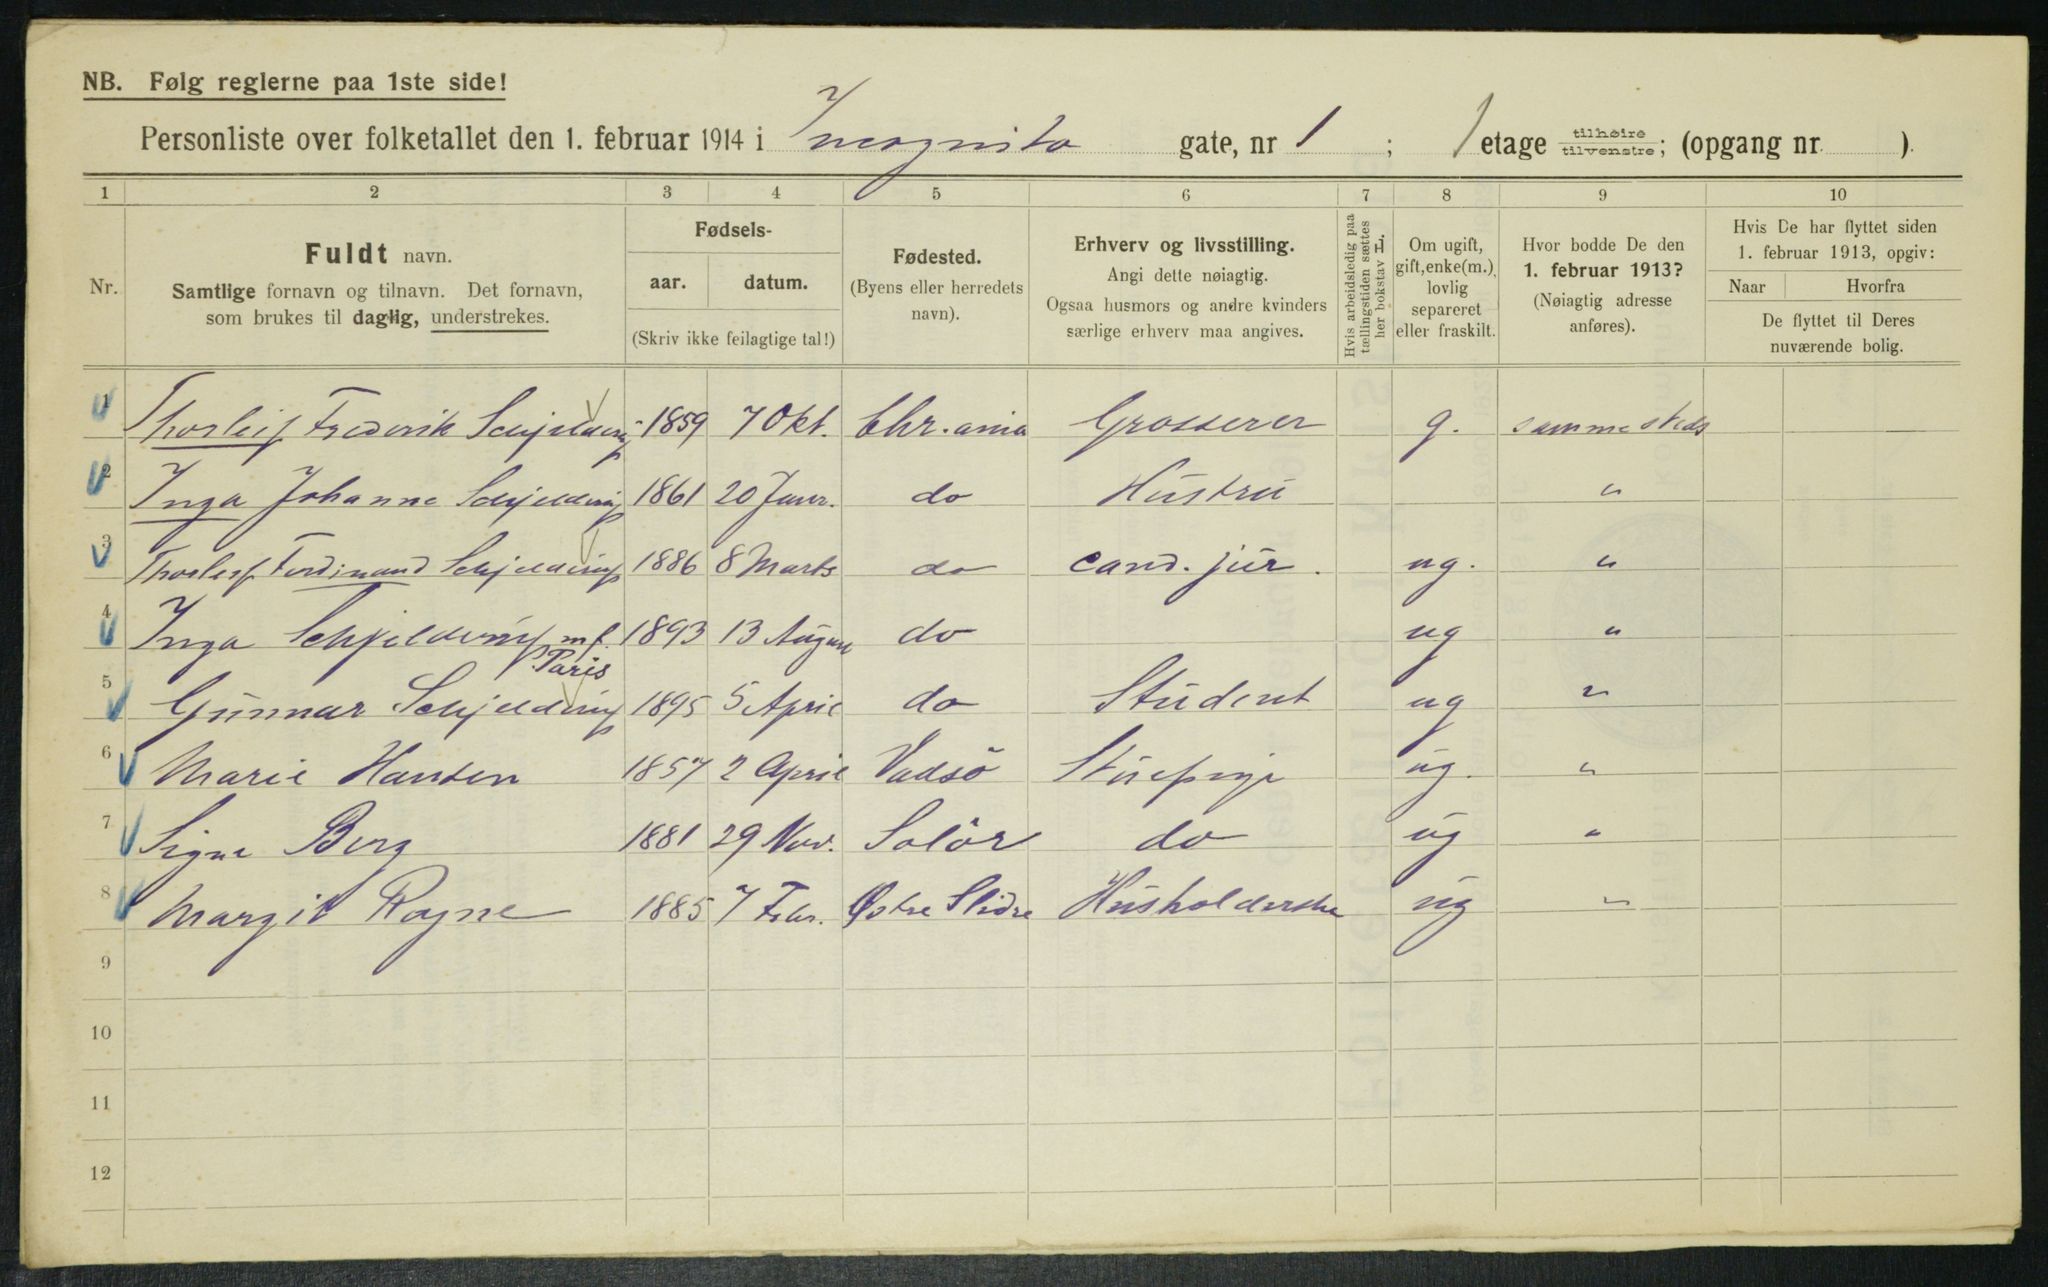 NB. Følg reglerne paa 1ste side!
Personliste over folketallet den 1. februar 1914 i Incognito gate, nr 1 ; 1 etage tilhøire tilvenstre; (opgang nr. ).
1 2 3 4 5 6 7 8 9 10
Nr.
Fuldt navn.
Samtlige fornavn og tilnavn. Det fornavn,
som brukes til daglig, understrekes.
Fødsels-
aar. datum.
(Skriv ikke feilagtige tal!)
Fødested.
(Byens eller herredets
navn).
Erhverv og livsstilling.
Angi dette nøiagtig.
Ogsaa husmors og andre kvinders
særlige erhverv maa angives.
Hvis arbeidsledig paa
tællingstiden sættes
her bokstav L.
Om ugift,
gift, enke(m.),
lovlig
separeret
eller fraskilt.
Hvor bodde De den
1. februar 1913?
(Nøiagtig adresse
anføres).
Hvis De har flyttet siden
1. februar 1913, opgiv:
Naar Hvorfra
De flyttet til Deres
nuværende bolig.
1 Thorleif Frederik Schjelderup 1859 7 Okt. Chr.ania Grosserer g. sammesteds
2 Inga Johanne Schjelderup 1861 20 Janr. do Hustru "
3 Thorleif Ferdinand Schjelderup 1886 8 Marts do cand. jur. ug. "
4 Inga Schjelderup m.f. Paris 1893 13 August do ug "
5 Gunnar Schjelderup 1895 5 April do Student ug "
6 Marie Hansen 1857 2 April Vadsö Stuepige ug. "
7 Signe Berg 1881 29 Nov. Solör do ug "
8 Margit Rogne 1885 7 Febr. Østre Slidre Husholderske ug "
9
10
11
12